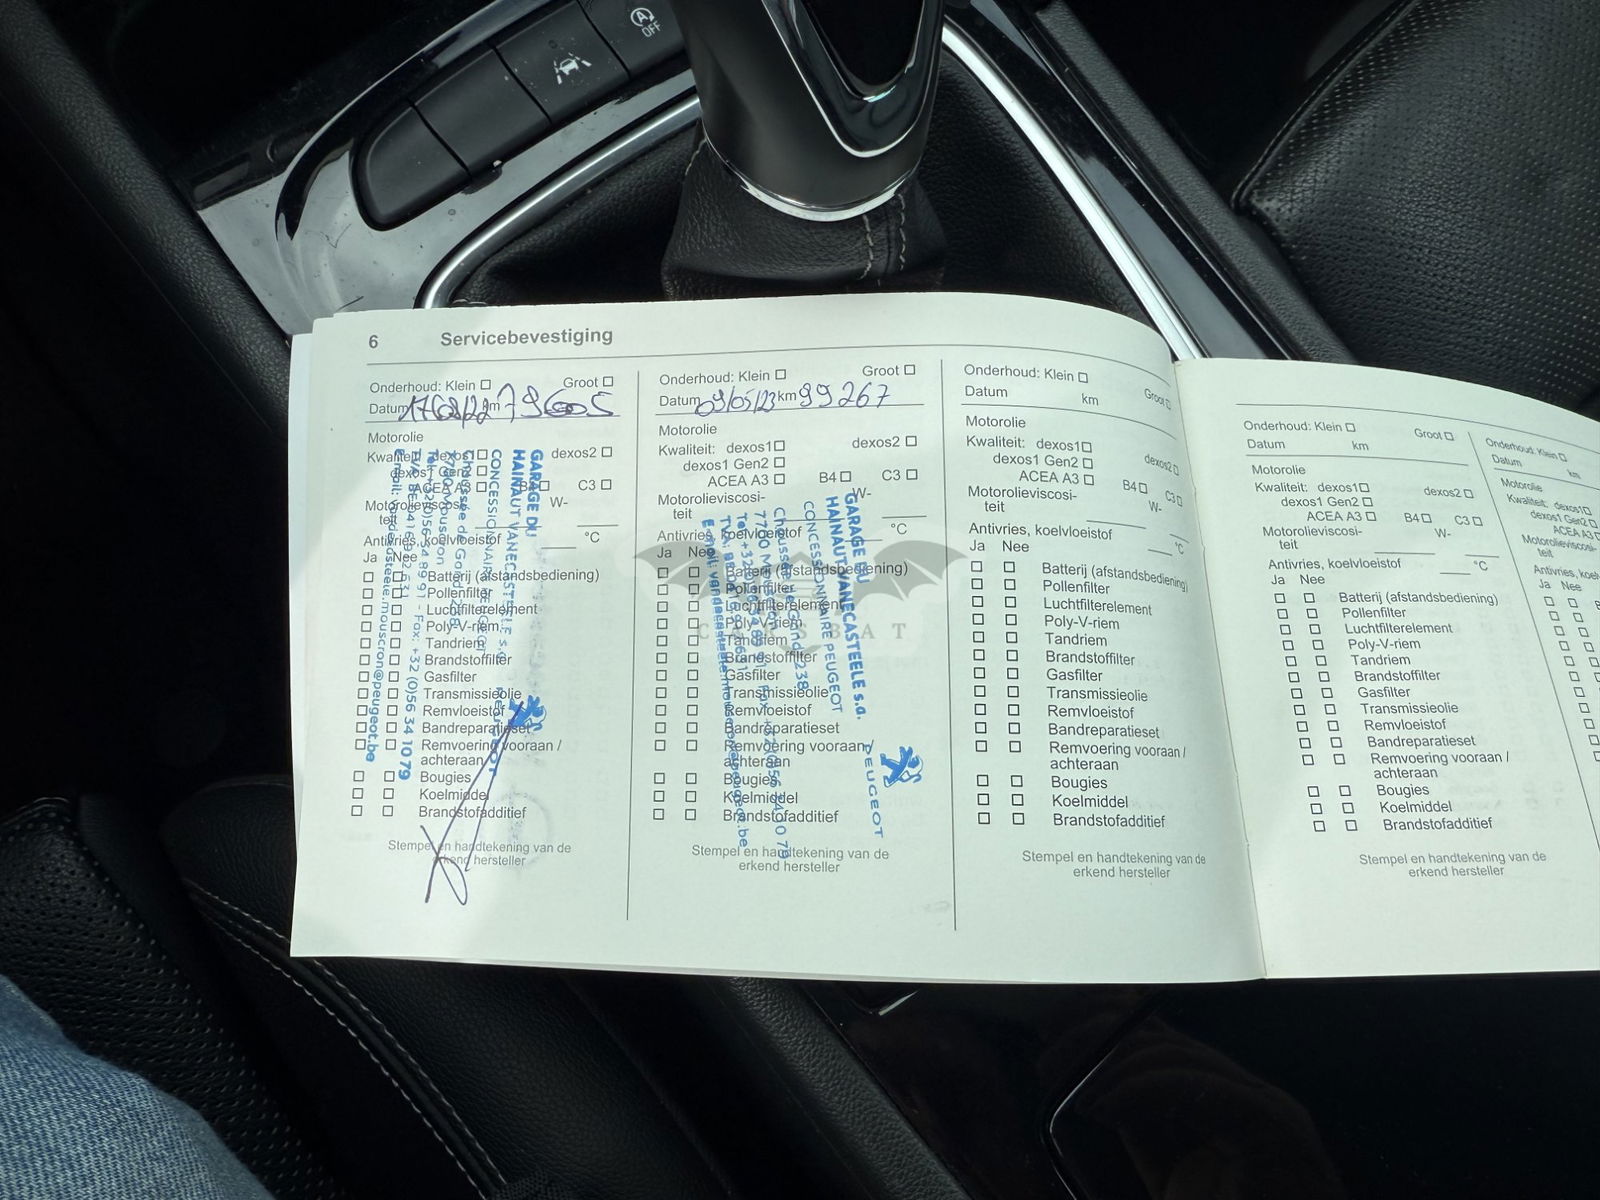 A
OFF
6 Servicebevestiging
Onderhoud: Klein □ Groot □
Datum 17/08/22 km 79605
Motorolie
Kwaliteit: dexos1 □ dexos2 □
dexos1 Gen2 □
ACEA A3 □ B4 □ C3 □
Motorolieviscosi-
teit W-
Antivries, koelvloeistof °C
Ja Nee
□ □ Batterij (afstandsbediening)
□ □ Pollenfilter
□ □ Luchtfilterelement
□ □ Poly-V-riem
□ □ Tandriem
□ □ Brandstoffilter
□ □ Gasfilter
□ □ Transmissieolie
□ □ Remvloeistof
□ □ Bandreparatieset
□ □ Remvoering vooraan /
achteraan
□ □ Bougies
□ □ Koelmiddel
□ □ Brandstofadditief
Stempel en handtekening van de
erkend hersteller
GARAGE DU
HAINAUT VANECASTEELE s.a.
CONCESSIONNAIRE PEUGEOT
Chaussée de Gand, 238
7700 Mouscron
Fax: +32 (0)56 34 10 79
PEUGEOT
Onderhoud: Klein □ Groot □
Datum 09/05/23 km 99267
Motorolie
Kwaliteit: dexos1 □ dexos2 □
dexos1 Gen2 □
ACEA A3 □ B4 □ C3 □
Motorolieviscosi-
teit W-
Antivries, koelvloeistof °C
Ja Nee
□ □ Batterij (afstandsbediening)
□ □ Pollenfilter
□ □ Luchtfilterelement
□ □ Poly-V-riem
□ □ Tandriem
□ □ Brandstoffilter
□ □ Gasfilter
□ □ Transmissieolie
□ □ Remvloeistof
□ □ Bandreparatieset
□ □ Remvoering vooraan /
achteraan
□ □ Bougies
□ □ Koelmiddel
□ □ Brandstofadditief
Stempel en handtekening van de
erkend hersteller
GARAGE DU
HAINAUT VANECASTEELE s.a.
CONCESSIONNAIRE PEUGEOT
Chaussée de Gand, 238
7700 Mouscron
PEUGEOT
CARSBAT
Onderhoud: Klein □ Groot □
Datum km
Motorolie
Kwaliteit: dexos1 □ dexos2 □
dexos1 Gen2 □
ACEA A3 □ B4 □ C3 □
Motorolieviscosi-
teit W-
Antivries, koelvloeistof °C
Ja Nee
□ □ Batterij (afstandsbediening)
□ □ Pollenfilter
□ □ Luchtfilterelement
□ □ Poly-V-riem
□ □ Tandriem
□ □ Brandstoffilter
□ □ Gasfilter
□ □ Transmissieolie
□ □ Remvloeistof
□ □ Bandreparatieset
□ □ Remvoering vooraan /
achteraan
□ □ Bougies
□ □ Koelmiddel
□ □ Brandstofadditief
Stempel en handtekening van de
erkend hersteller
Onderhoud: Klein □ Groot □
Datum km
Motorolie
Kwaliteit: dexos1 □ dexos2 □
dexos1 Gen2 □
ACEA A3 □ B4 □ C3 □
Motorolieviscosi-
teit W-
Antivries, koelvloeistof °C
Ja Nee
□ □ Batterij (afstandsbediening)
□ □ Pollenfilter
□ □ Luchtfilterelement
□ □ Poly-V-riem
□ □ Tandriem
□ □ Brandstoffilter
□ □ Gasfilter
□ □ Transmissieolie
□ □ Remvloeistof
□ □ Bandreparatieset
□ □ Remvoering vooraan /
achteraan
□ □ Bougies
□ □ Koelmiddel
□ □ Brandstofadditief
Stempel en handtekening van de
erkend hersteller
Onderhoud: Klein □
Datum km
Motorolie
Kwaliteit: dexos1 □
dexos1 Gen2 □
ACEA A3
Motorolieviscosi-
teit
Ja Nee